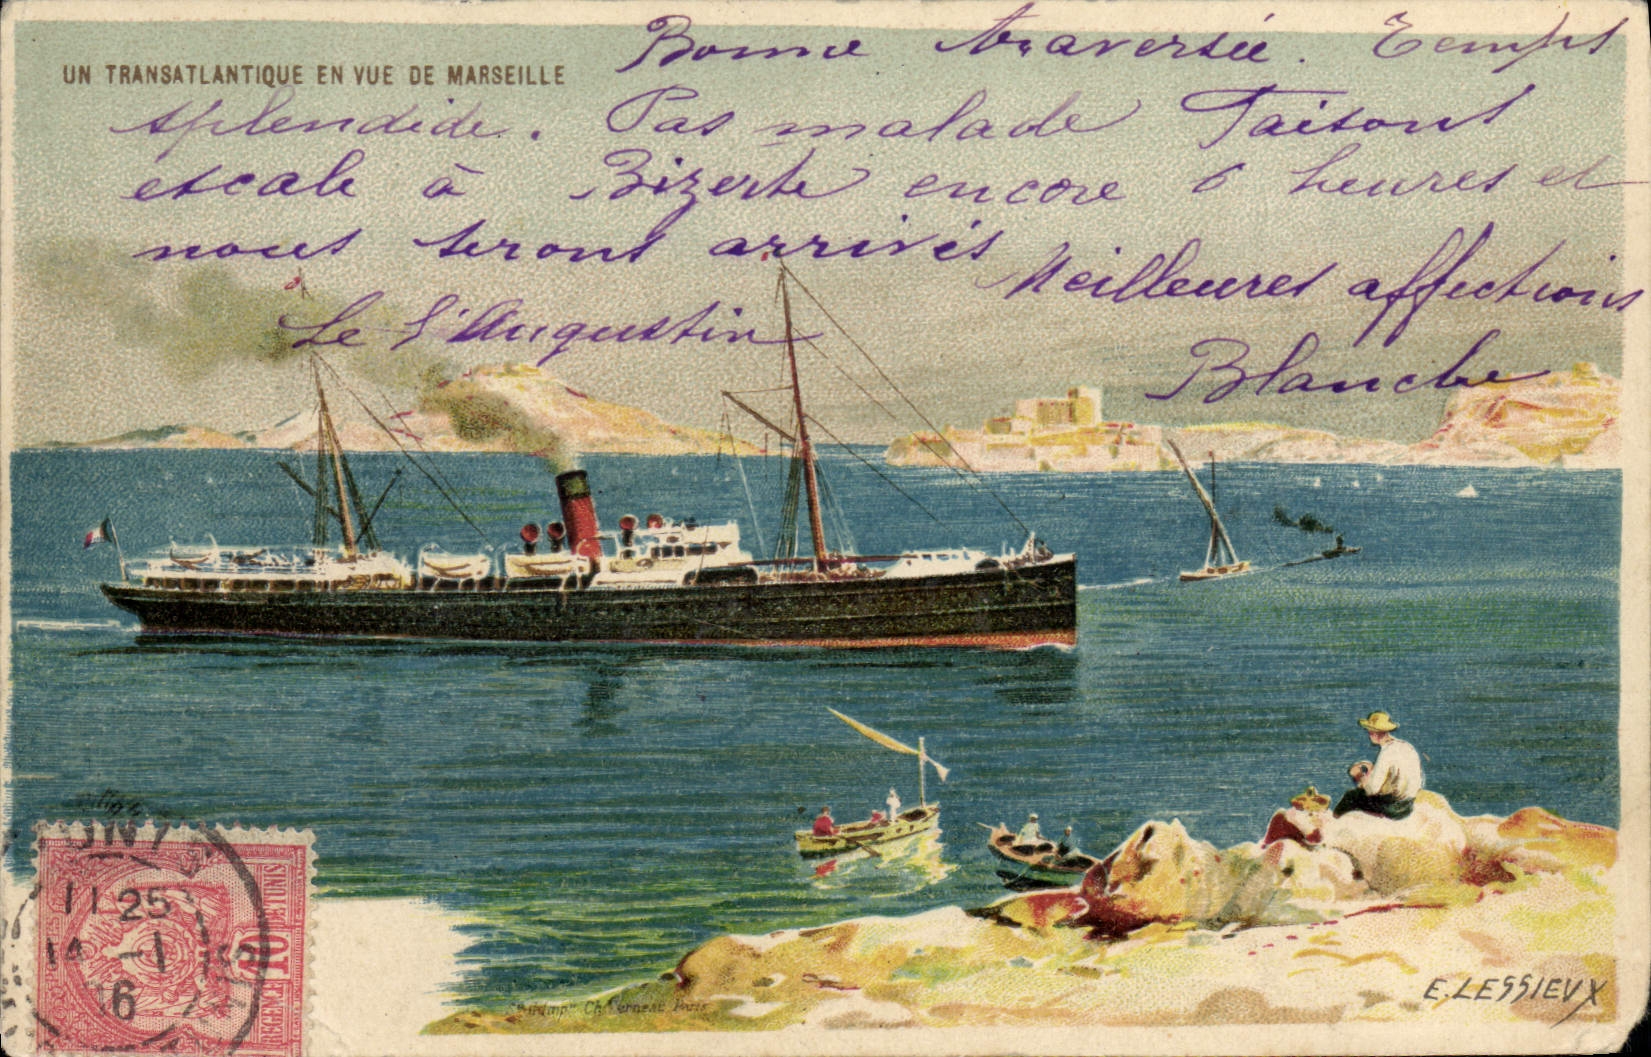 UN TRANSATLANTIQUE EN VUE DE MARSEILLE
Bonne traversée. Temps
splendide. Pas malade Faisons
escale à Bizerte encore 6 heures et
nous serons arrivés
Meilleures affections
Le St Augustin
Blanche
11 25
14 -1
16
10
REGENCE DE TUNIS
Ch.
Paris
E. LESSIEUX